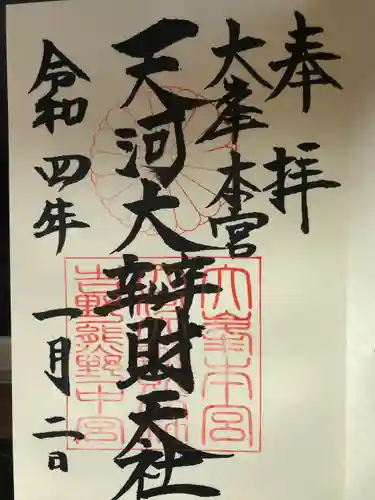 奉拝
大峯本宮
天河大辨財天社
令和四年
一月二日
大峯本宮
吉野熊野中宮